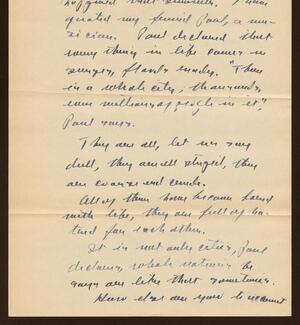 my friend Paul, a mu-
sician. Paul declared that
every thing in life comes in
surges, floods really. "There
is a whole city, thousands,
even millions of people in it",
Paul says.
They are all, let us say
dull, they are all stupid, they
are coarse and crude.
All of them have become bored
with life, they are full of ha-
tred for each other.
It is not only cities, Paul
declares, whole nations
are like that sometimes.
How else are you to account